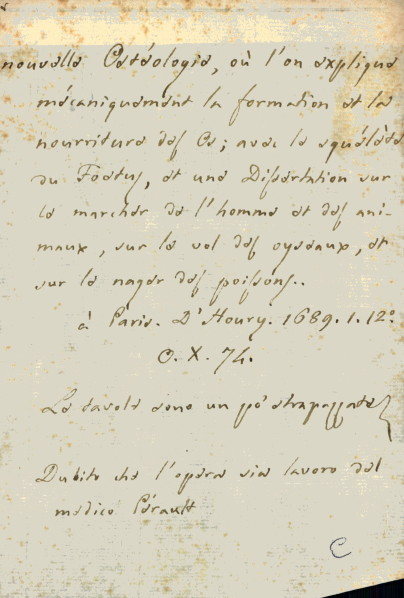 nouvelle Ostéologie, où l'on explique
mécaniquement la formation et la
nourriture des Os; avec le squélète
du Foetus, et une Dissertation sur
le marcher de l'homme et des ani-
maux, sur le vol des oyseaux, et
sur le nager des poissons..
à Paris. D'Houry. 1689. 1. 12°
O. X. 74.
Le tavole sono un po' strapazzate
Dubito che l'opera sia lavoro del
medico Pérault
C